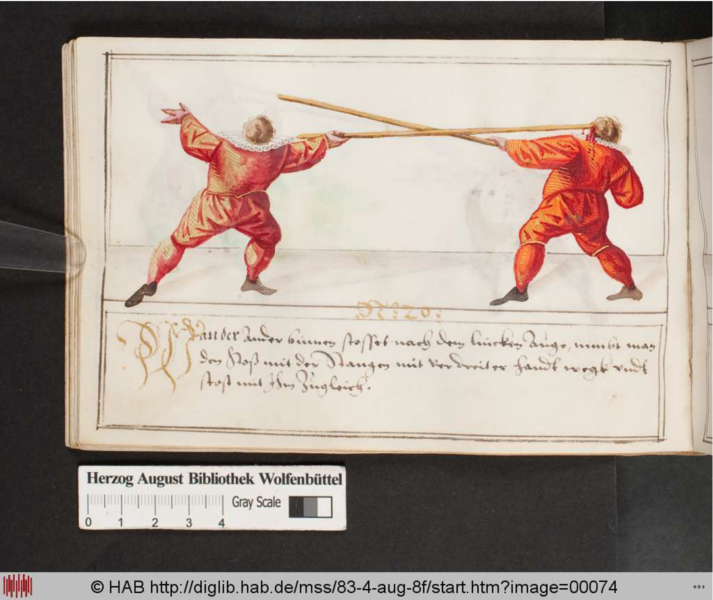 N: 20:
Wan der Ander binnen stosset nach dem lincken Auge, nimbt man
den Stoß mit der Stangen mit verdreiter Handt wegk vndt
stost mit Ihm Zugleich.
Herzog August Bibliothek Wolfenbüttel
Gray Scale
0 1 2 3 4
© HAB http://diglib.hab.de/mss/83-4-aug-8f/start.htm?image=00074